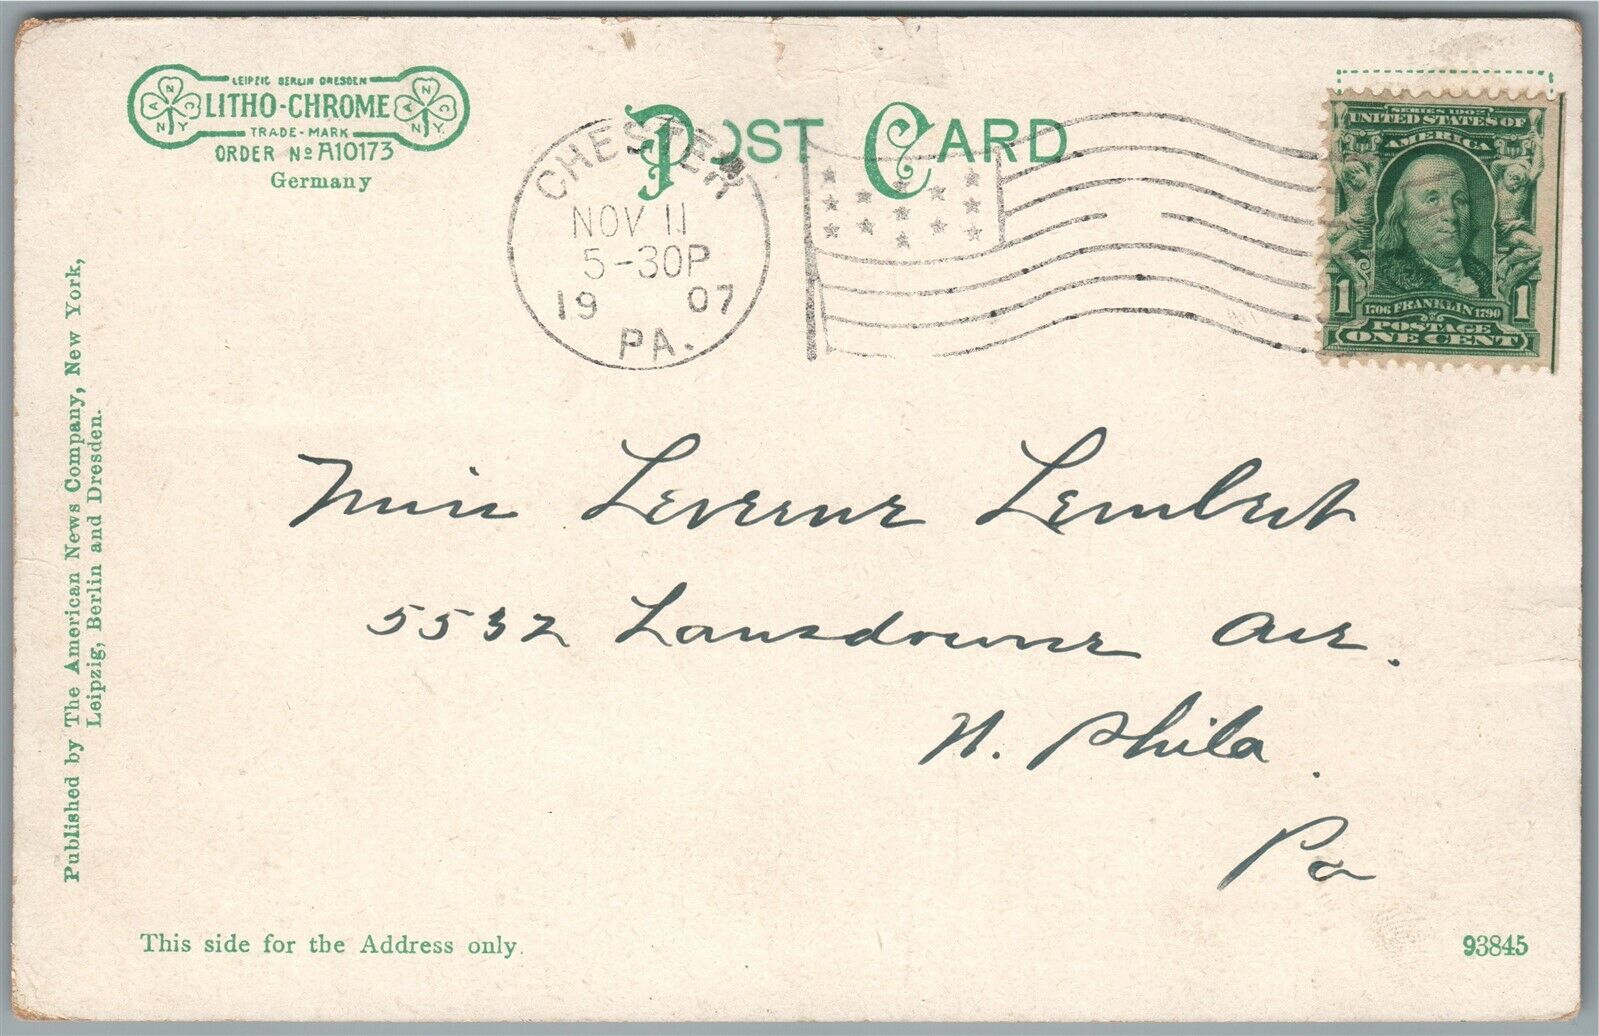 LEIPZIG BERLIN DRESDEN
LITHO-CHROME
TRADE-MARK
ANCNY
ANCNY
ORDER No A10173
Germany
POST CARD
CHESTER
NOV 11
5-30P
1907
PA.
SERIES 1902
UNITED STATES OF
AMERICA
1 1
1706 FRANKLIN 1790
POSTAGE
ONE CENT
Published by The American News Company, New York,
Leipzig, Berlin and Dresden.
Miss Leverne Lembert
5532 Lansdowne Ave.
W. Phila.
Pa
This side for the Address only.
93845